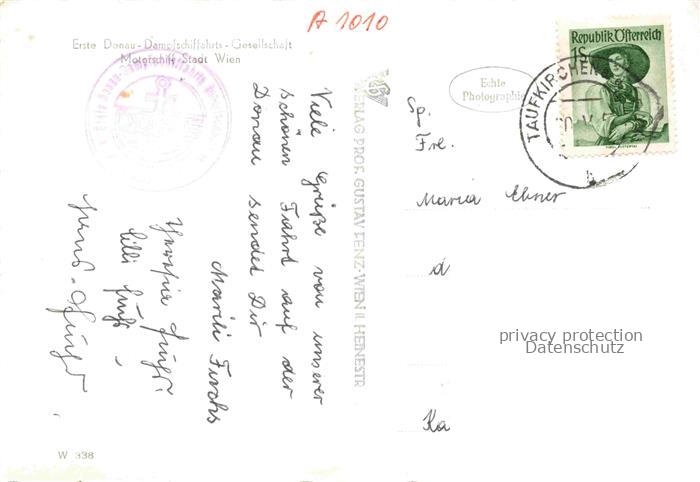 A 1010
Erste Donau-Dampfschiffahrts-Gesellschaft
Motorschiff Stadt Wien
Viele Grüße von unserer
schönen Fahrt auf der
Donau sendet Dir
Marili Fuchs
Lilli
W 338
VERLAG PROF. GUSTAV DENZ·WIEN II. HEINESTR
Echte
Photographie
Republik Österreich
1S
TAUFKIRCHEN
Sp.
Frl.
Maria Ebner
d
Ka
privacy protection
Datenschutz